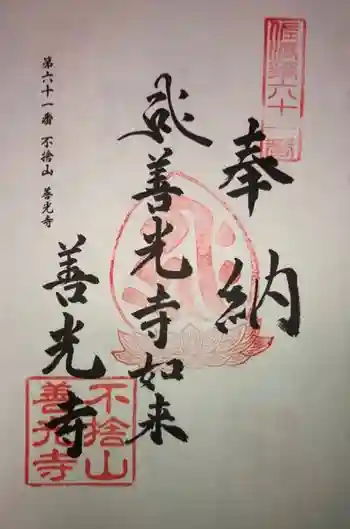 佐渡第六十一番
奉納
善光寺如来
善光寺
第六十一番 不捨山 善光寺
不捨山
善光寺